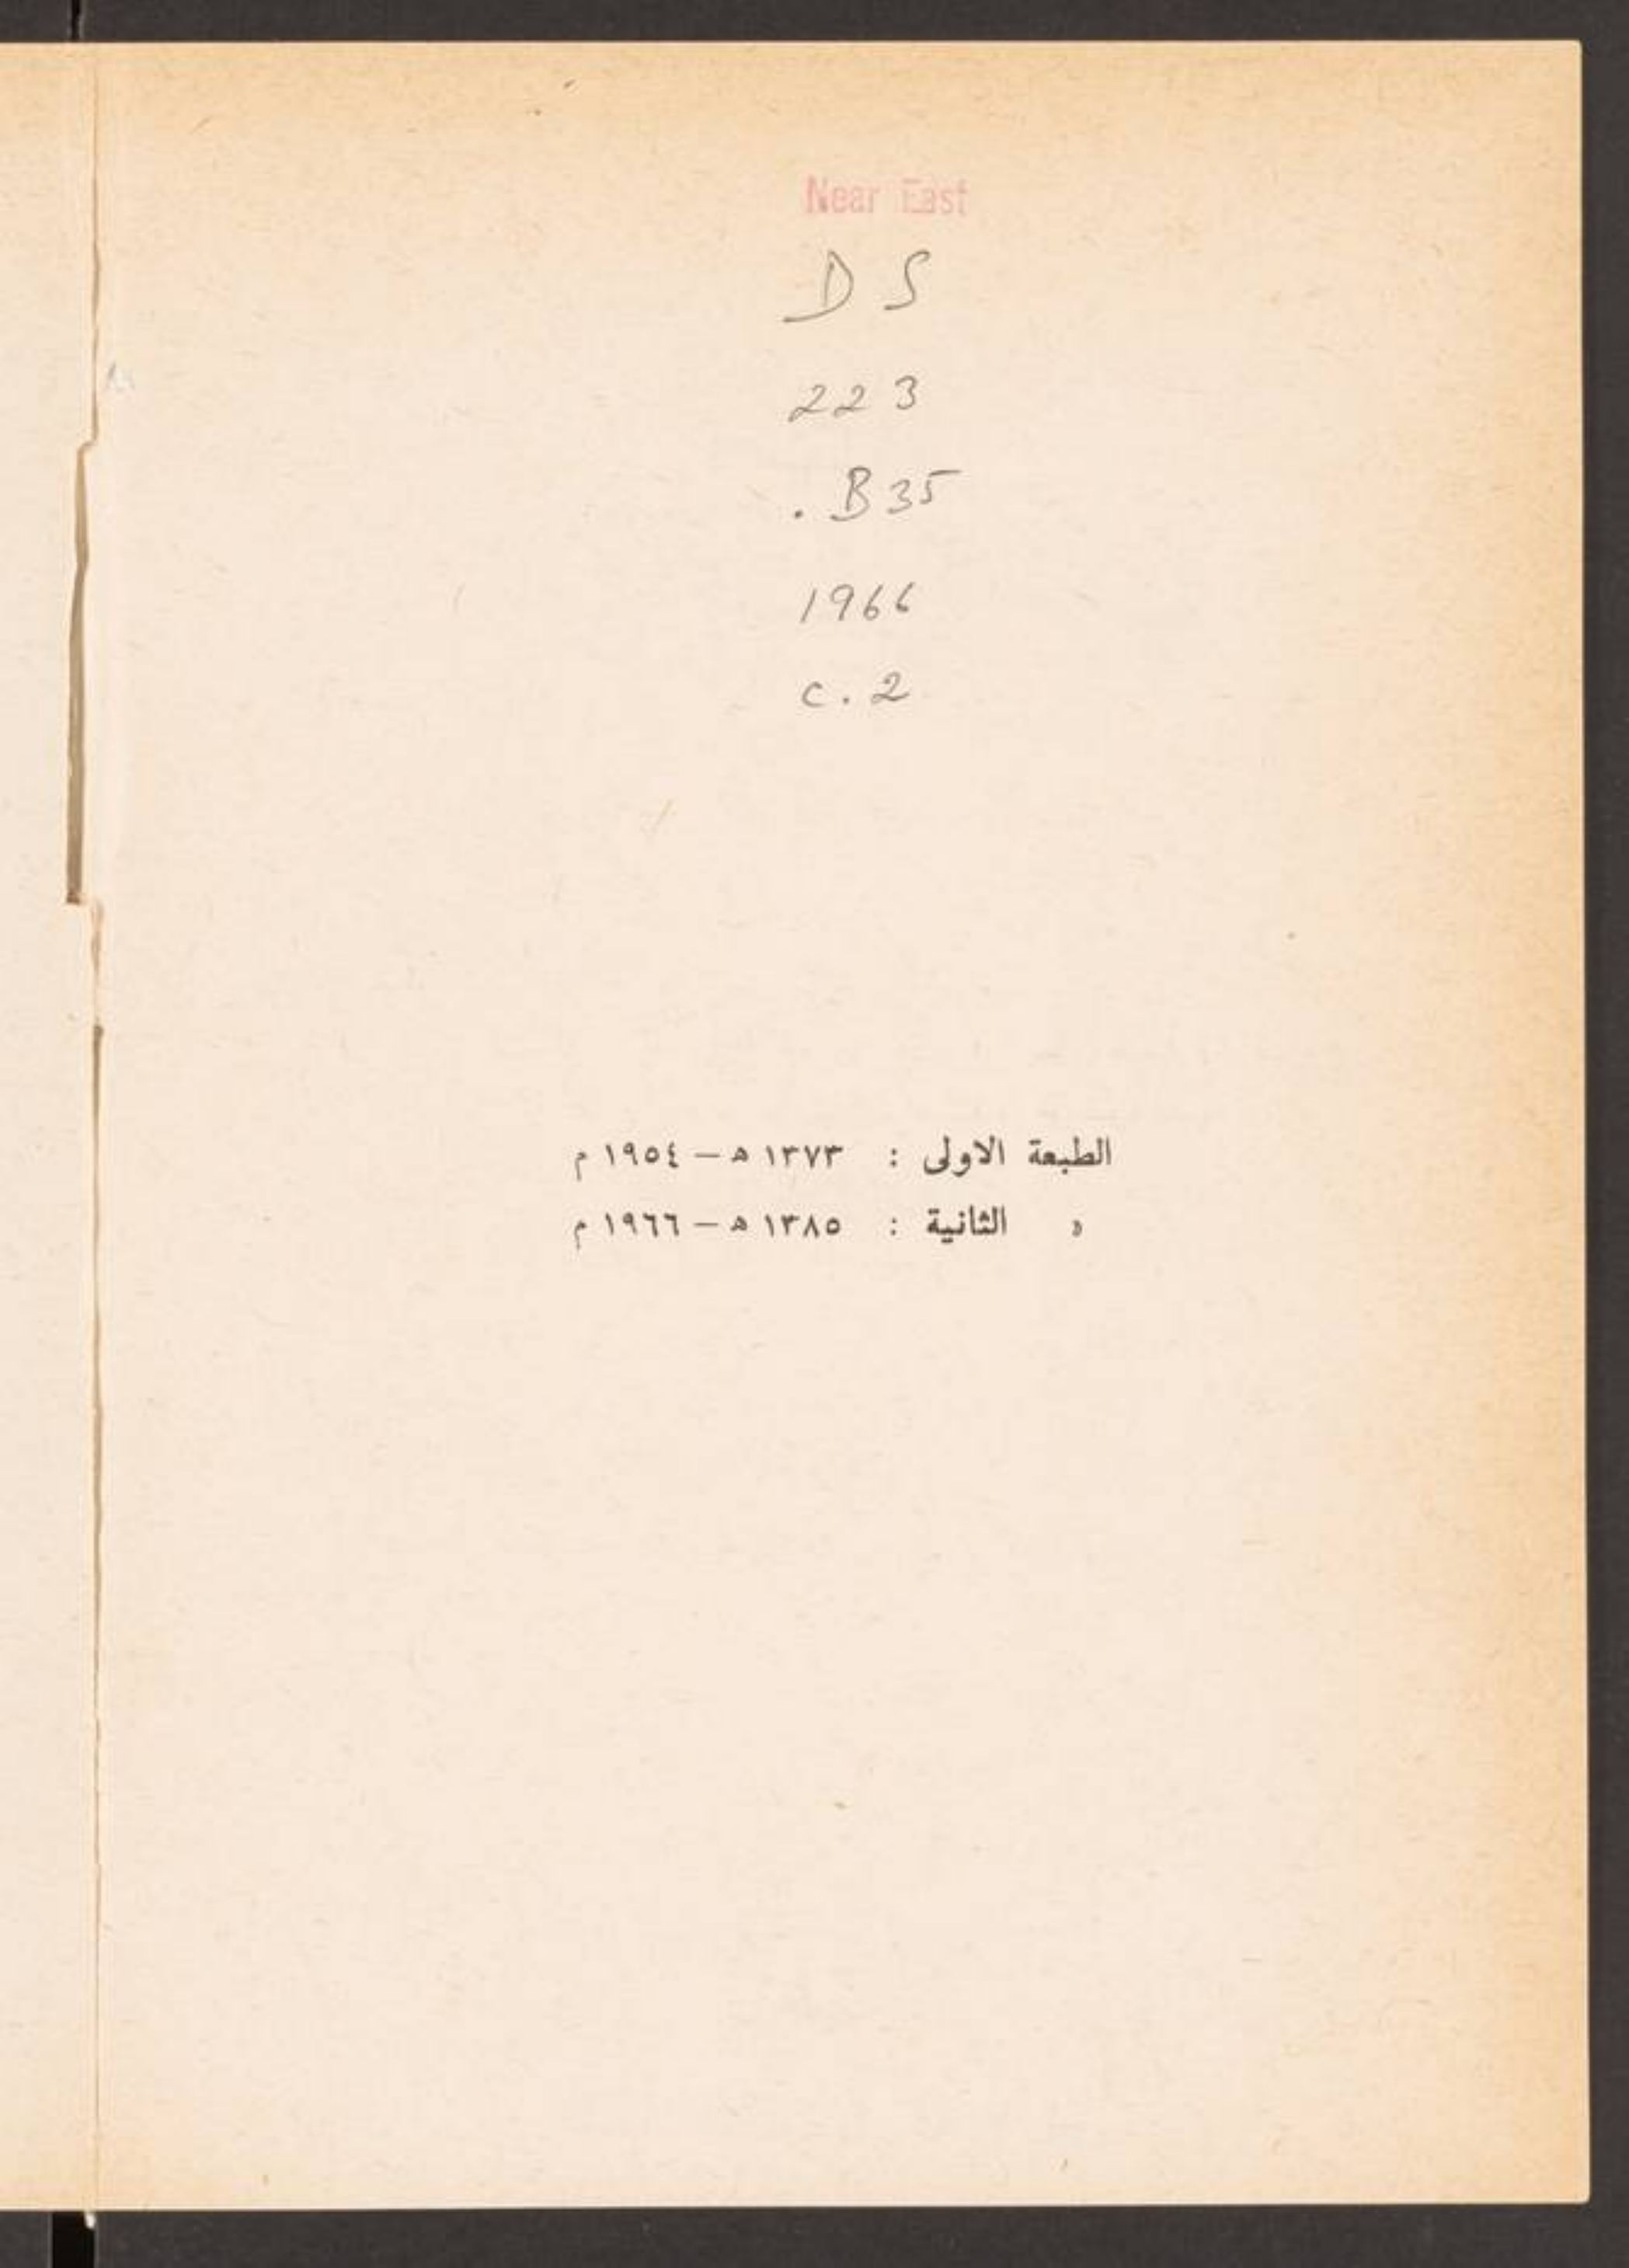 Near East
DS
223
.B35
1966
c.2
الطبعة الاولى : ١٣٧٣ هـ – ١٩٥٤ م
» الثانية : ١٣٨٥ هـ – ١٩٦٦ م